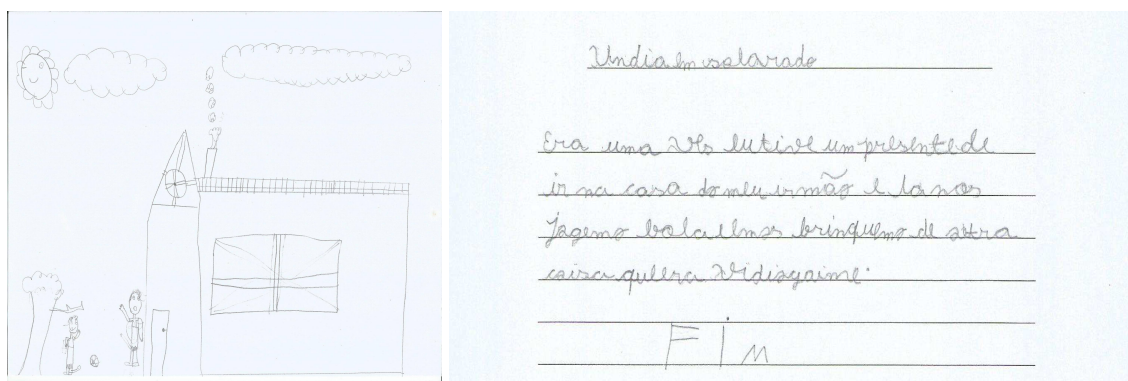 Undia em solarado
Era uma Ves eutive um presente de
ir na casa do meu irmão e la nos
jogemo bola e Emos brinquemo de outra
coisa que era Vidiogaime.
FiM